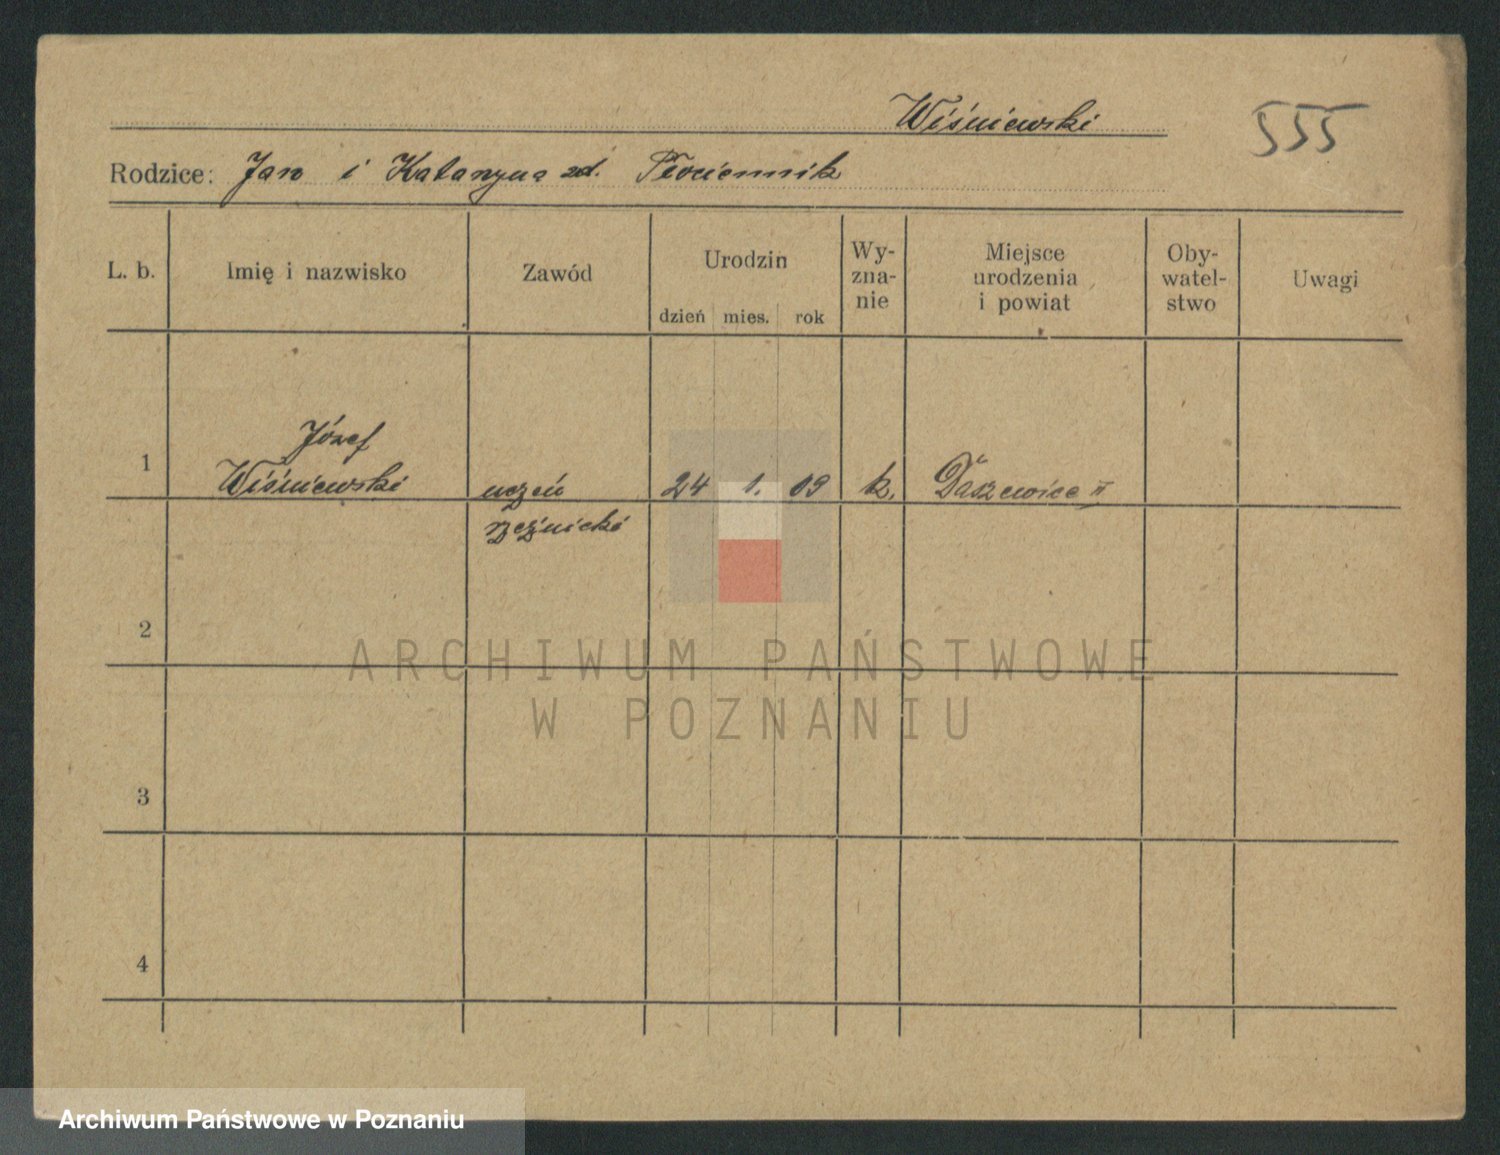 Wiśniewski
555
Rodzice: Jan i Katarzyna zd. Płóciennik
L. b.
Imię i nazwisko
Zawód
Urodzin
dzień mies. rok
Wy-
zna-
nie
Miejsce
urodzenia
i powiat
Oby-
watel-
stwo
Uwagi
1
Józef
Wiśniewski
uczeń
rzeźnicki
24 1. 09
k.
Daszewice
2
3
4
ARCHIWUM PAŃSTWOWE
W POZNANIU
Archiwum Państwowe w Poznaniu